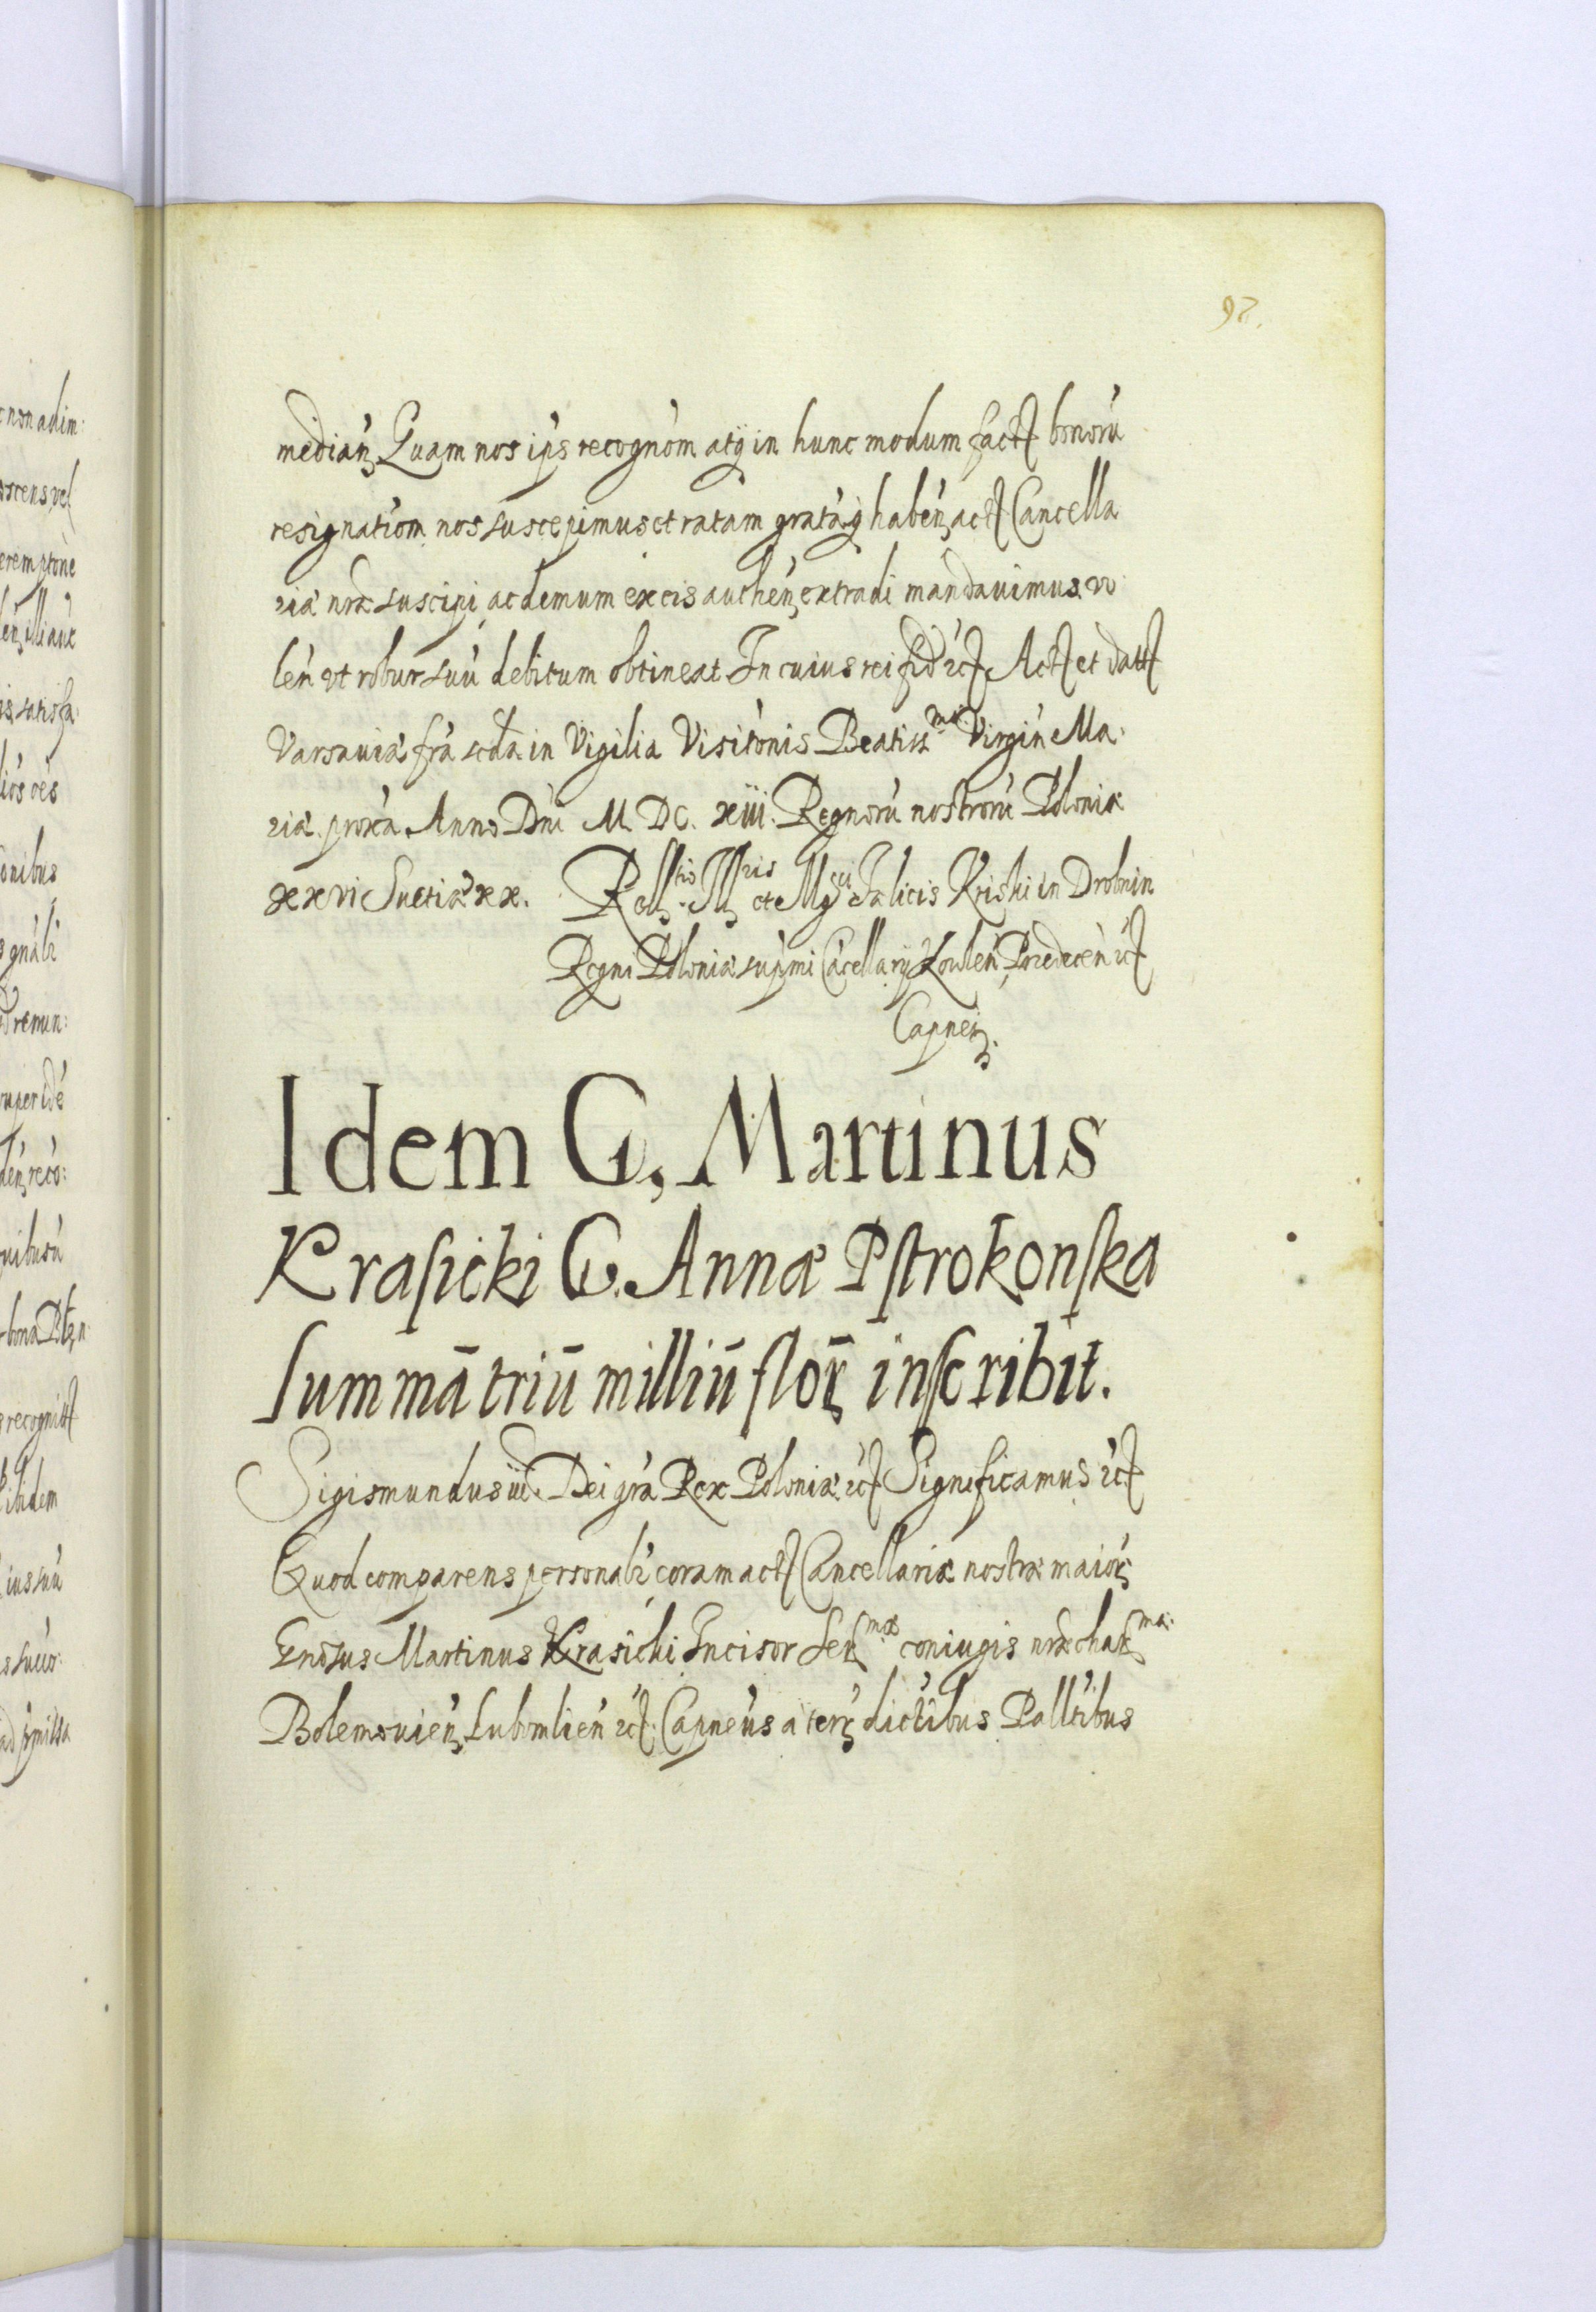 97.
median Quam nos ips recognom atq in hunc modum fact bonorū
resignatiom nos suscepimus et ratam gratāq haben, act Cancella
riæ nræ suscipi, ac demum ex eis authen, extradi mandavimus. vo
leń vt robur suū debitum obtineat In cuius rei fid etc Act et datt
Varsaviæ fra scda in Vigilia Visitonis Beatiss mæ Virgin Ma
riæ proxa Anno Dni M. DC. xiii. Regnorū nostrorū Poloniæ
xxvi Suetiæ xx. Rell tio Ill ris et Mg ci Fælicis Kriski in Drobnin
Regni Poloniæ supmi Cācellarij Kowlen, Przedecen etc
Capnei.
Idem G, Martinus
Krasicki G. Annæ Pstrokonska
summā triū milliū flor inscribit.
Sigismundus iii Dei gra Rex Poloniæ etc Significamus etc
Quod comparens personalr coram act Cancellariæ nostræ maior
Gnosus Martinus Krasicki Incisor Ser mæ coniugis nræ char mæ
Bolemovien, Lubomlien etc Capneus a terr dictibus Palltibus